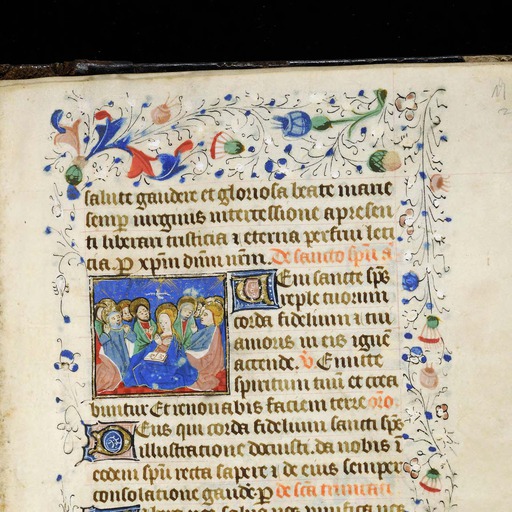 salute gaudere et gloriosa beate marie
semp virginis intercessione a presen
ti liberari tristicia ⁊ eterna perfrui leti
cia. P xpm dnm nrm. De sancto spu a
Veni sancte sps
reple tuorum
corda fidelium ⁊ tui
amoris in eis igne
accende. V. Emitte
spiritum tuu et crea
buntur Et renovabis faciem terre oro
Deus qui corda fidelium sancti sps
illustratione docuisti. da nobis ĩ
eodem spu recta sapere ⁊ de eius semper
consolatione gaude. P de sca trinitate